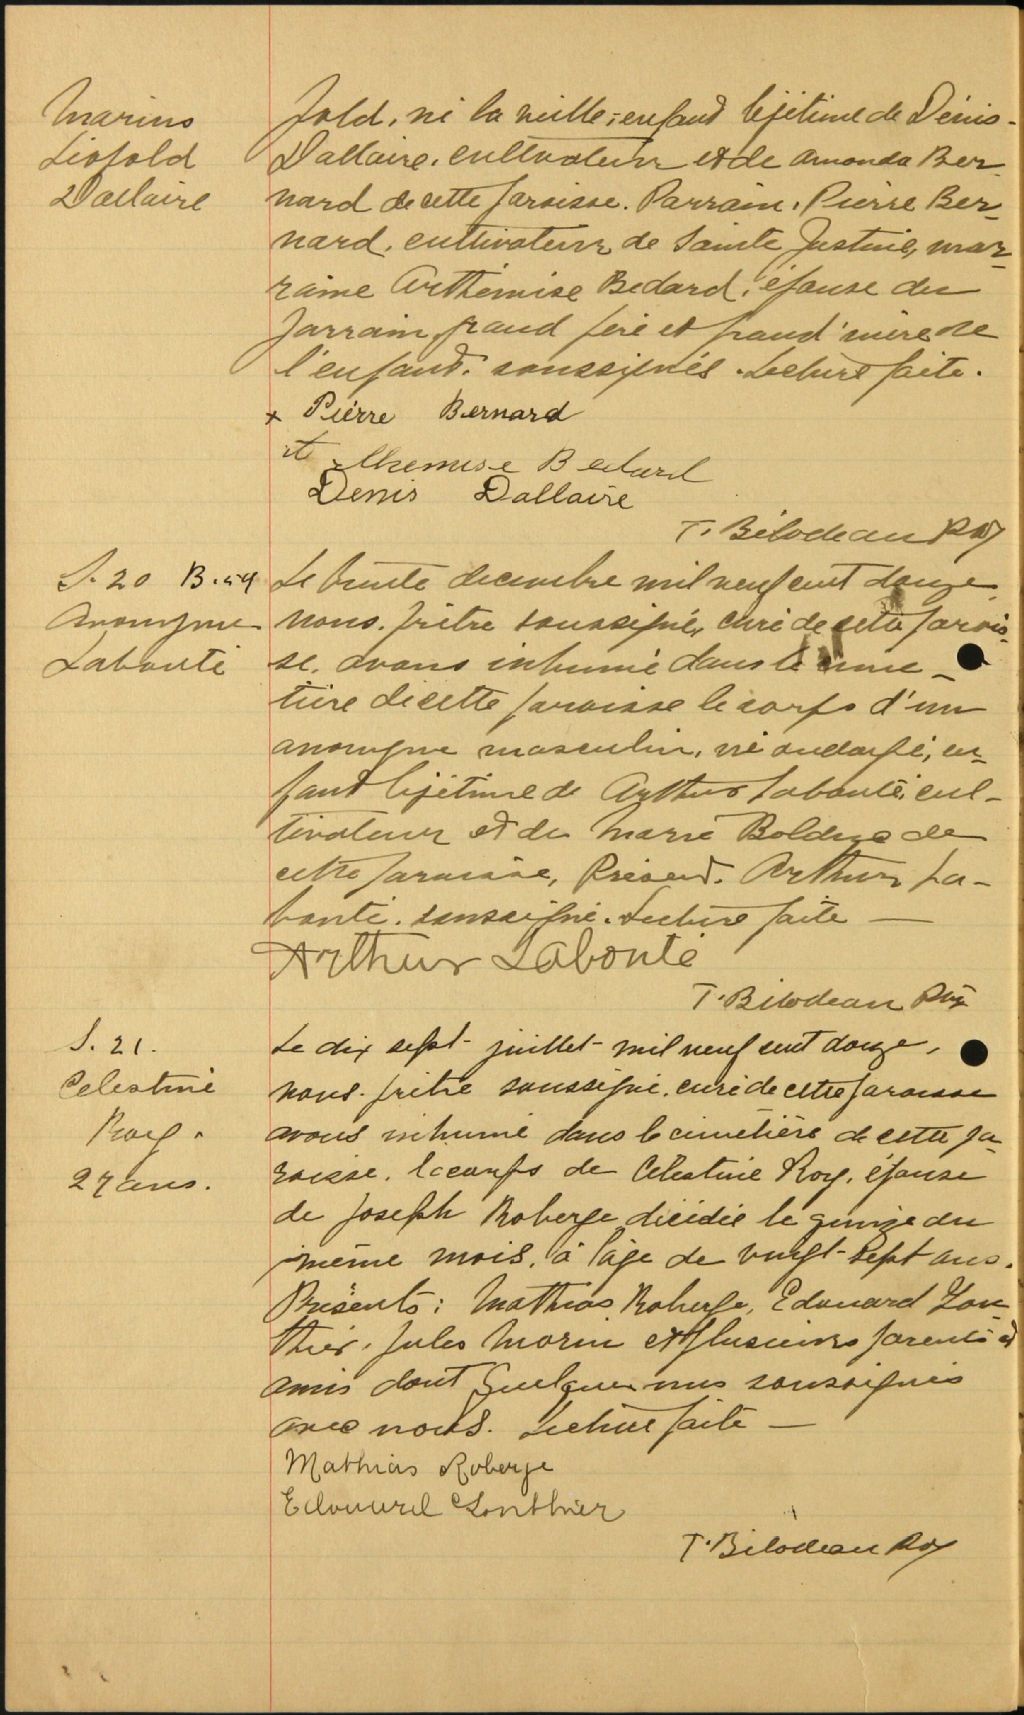 Marins
Léopold
Dallaire
pold, né la veille, enfant légitime de Dénis
Dallaire, cultivateur et de Amanda Ber-
nard de cette paroisse. Parrain, Pierre Ber-
nard, cultivateur de Sainte Justine, mar-
raine Arthémise Bedard, épouse du
parrain, grand père et grand'mère de
l'enfant, soussignés. Lecture faite.
x Pierre Bernard
Bedard
Denis Dallaire
T. Bilodeau Ptr
S. 20 B. 59
Anonyme
Labonté
Le trente decembre mil neuf cent douze,
nous, prêtre soussigné, curé de cette parois-
se, avons inhumé dans le cime-
tière de cette paroisse le corps d'un
anonyme masculin, né ondoyé, en-
fant légitime de Arthur Labonté, cul-
tivateur et de Marie Bolduc de
cette paroisse, Présent. Arthur La-
bonté, soussigné. Lecture faite —
Arthur Labonté
T. Bilodeau Ptr
S. 21.
Celestine
Roy.
27 ans.
Le dix sept juillet mil neuf cent douze,
nous, prêtre soussigné, curé de cette paroisse
avons inhumé dans le cimetière de cette pa-
roisse, le corps de Célestine Roy, épouse
de Joseph Roberge, décédée le quinze du
même mois, à l'âge de vingt-sept ans.
Présents: Mathias Roberge, Edouard Gon-
thier, Jules Morin et plusieurs parents et
amis dont quelques uns soussignés
avec nous. Lecture faite —
Mathias Roberge
Edouard Gonthier
T. Bilodeau Ptr